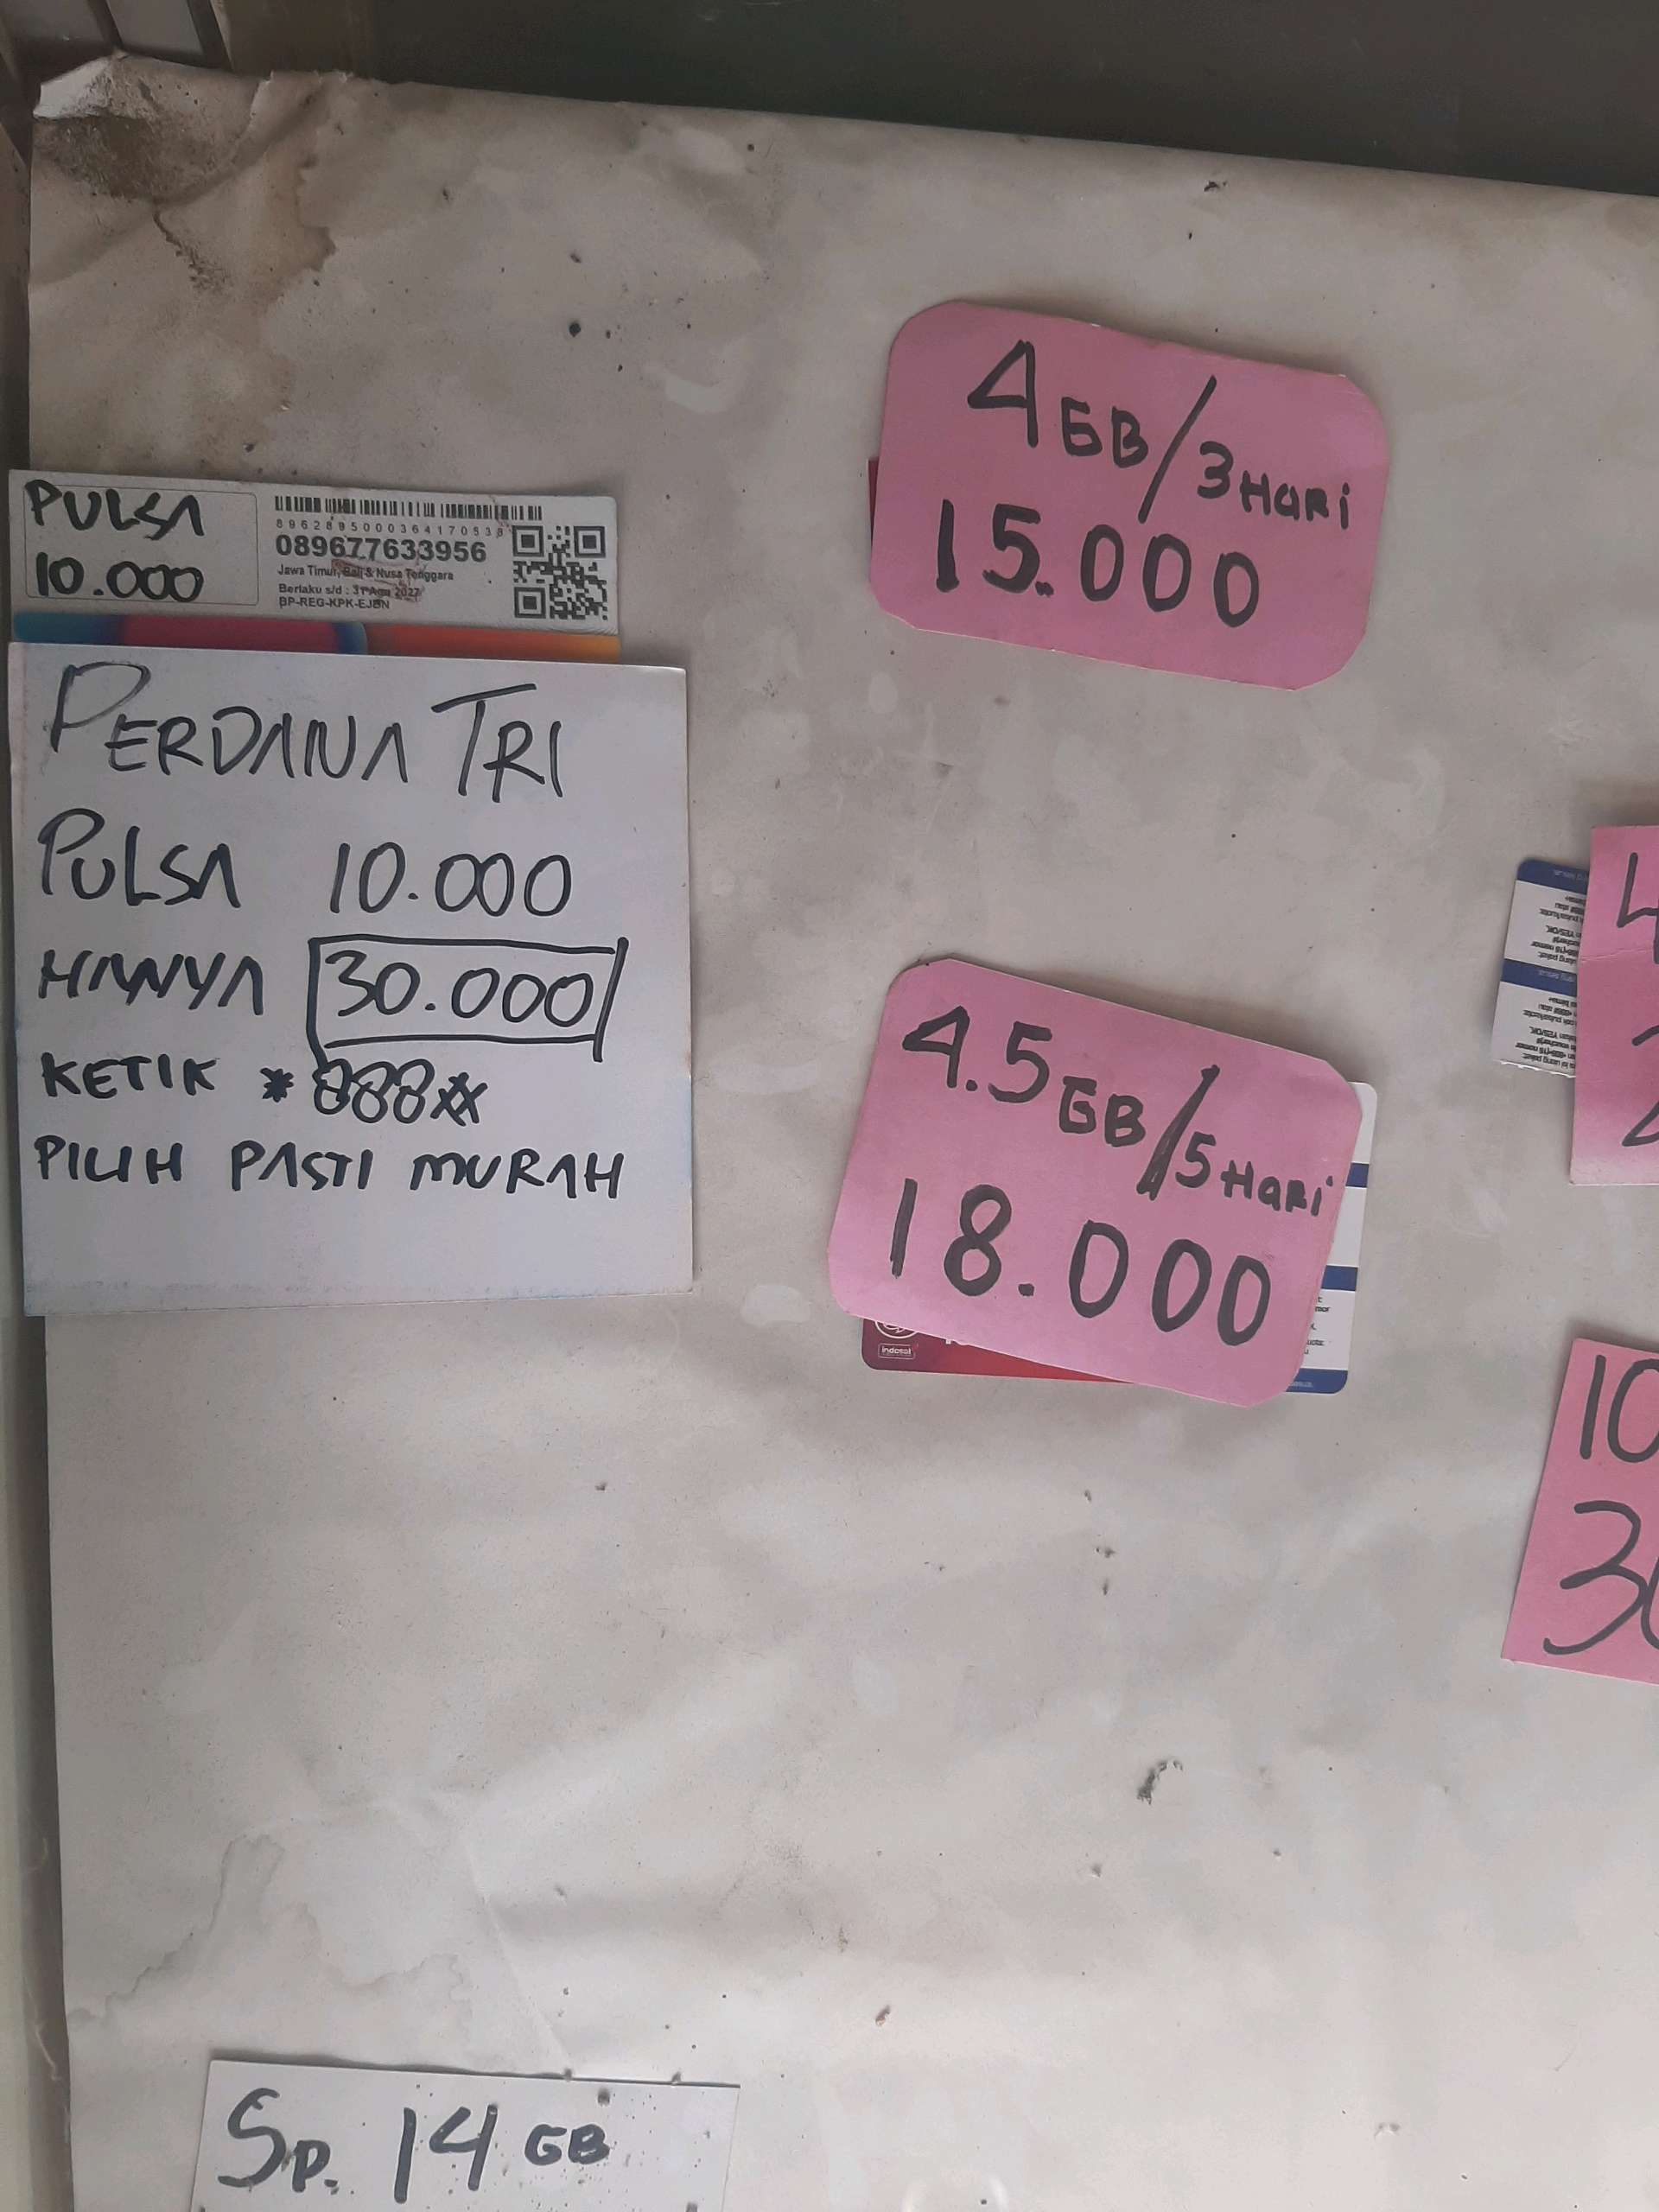 PULSA
10.000
089677633956
Jawa Timur, Bali & Nusa Tenggara
Berlaku s/d : 31 Agu 2027
BP-REG-KPK-EJBN
PERDANA TRI
PULSA 10.000
HANYA 30.000
KETIK *888#
PILIH PASTI MURAH
4GB/3HARi
15.000
4.5GB/5HARi
18.000
indosat
10
Sp. 14 GB